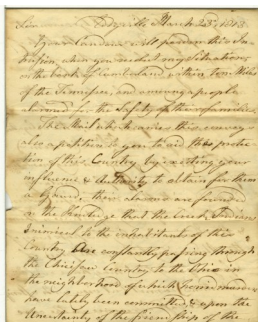 Eddyville March 23d, 1813
Sir
Your Candour will pardon this In-
trusion, when you reflect my situation
on the bank of Cumberland within ten Miles
of the Tennessee, and among a people
alarmed for the safety of their families.
The Mail which carries this conveys
also a petition to you to aid the protec
tion of this Country by exerting your
influence & Authority to obtain for them
a Guard, their alarms are founded
on the that the Creek Indians
inimical to the inhabitants of this
Country are constantly passing through
the Chickasaw Country to the Ohio in
the neighborhood of which some murders
have lately been committed & upon the
Uncertainty of the friendship of the